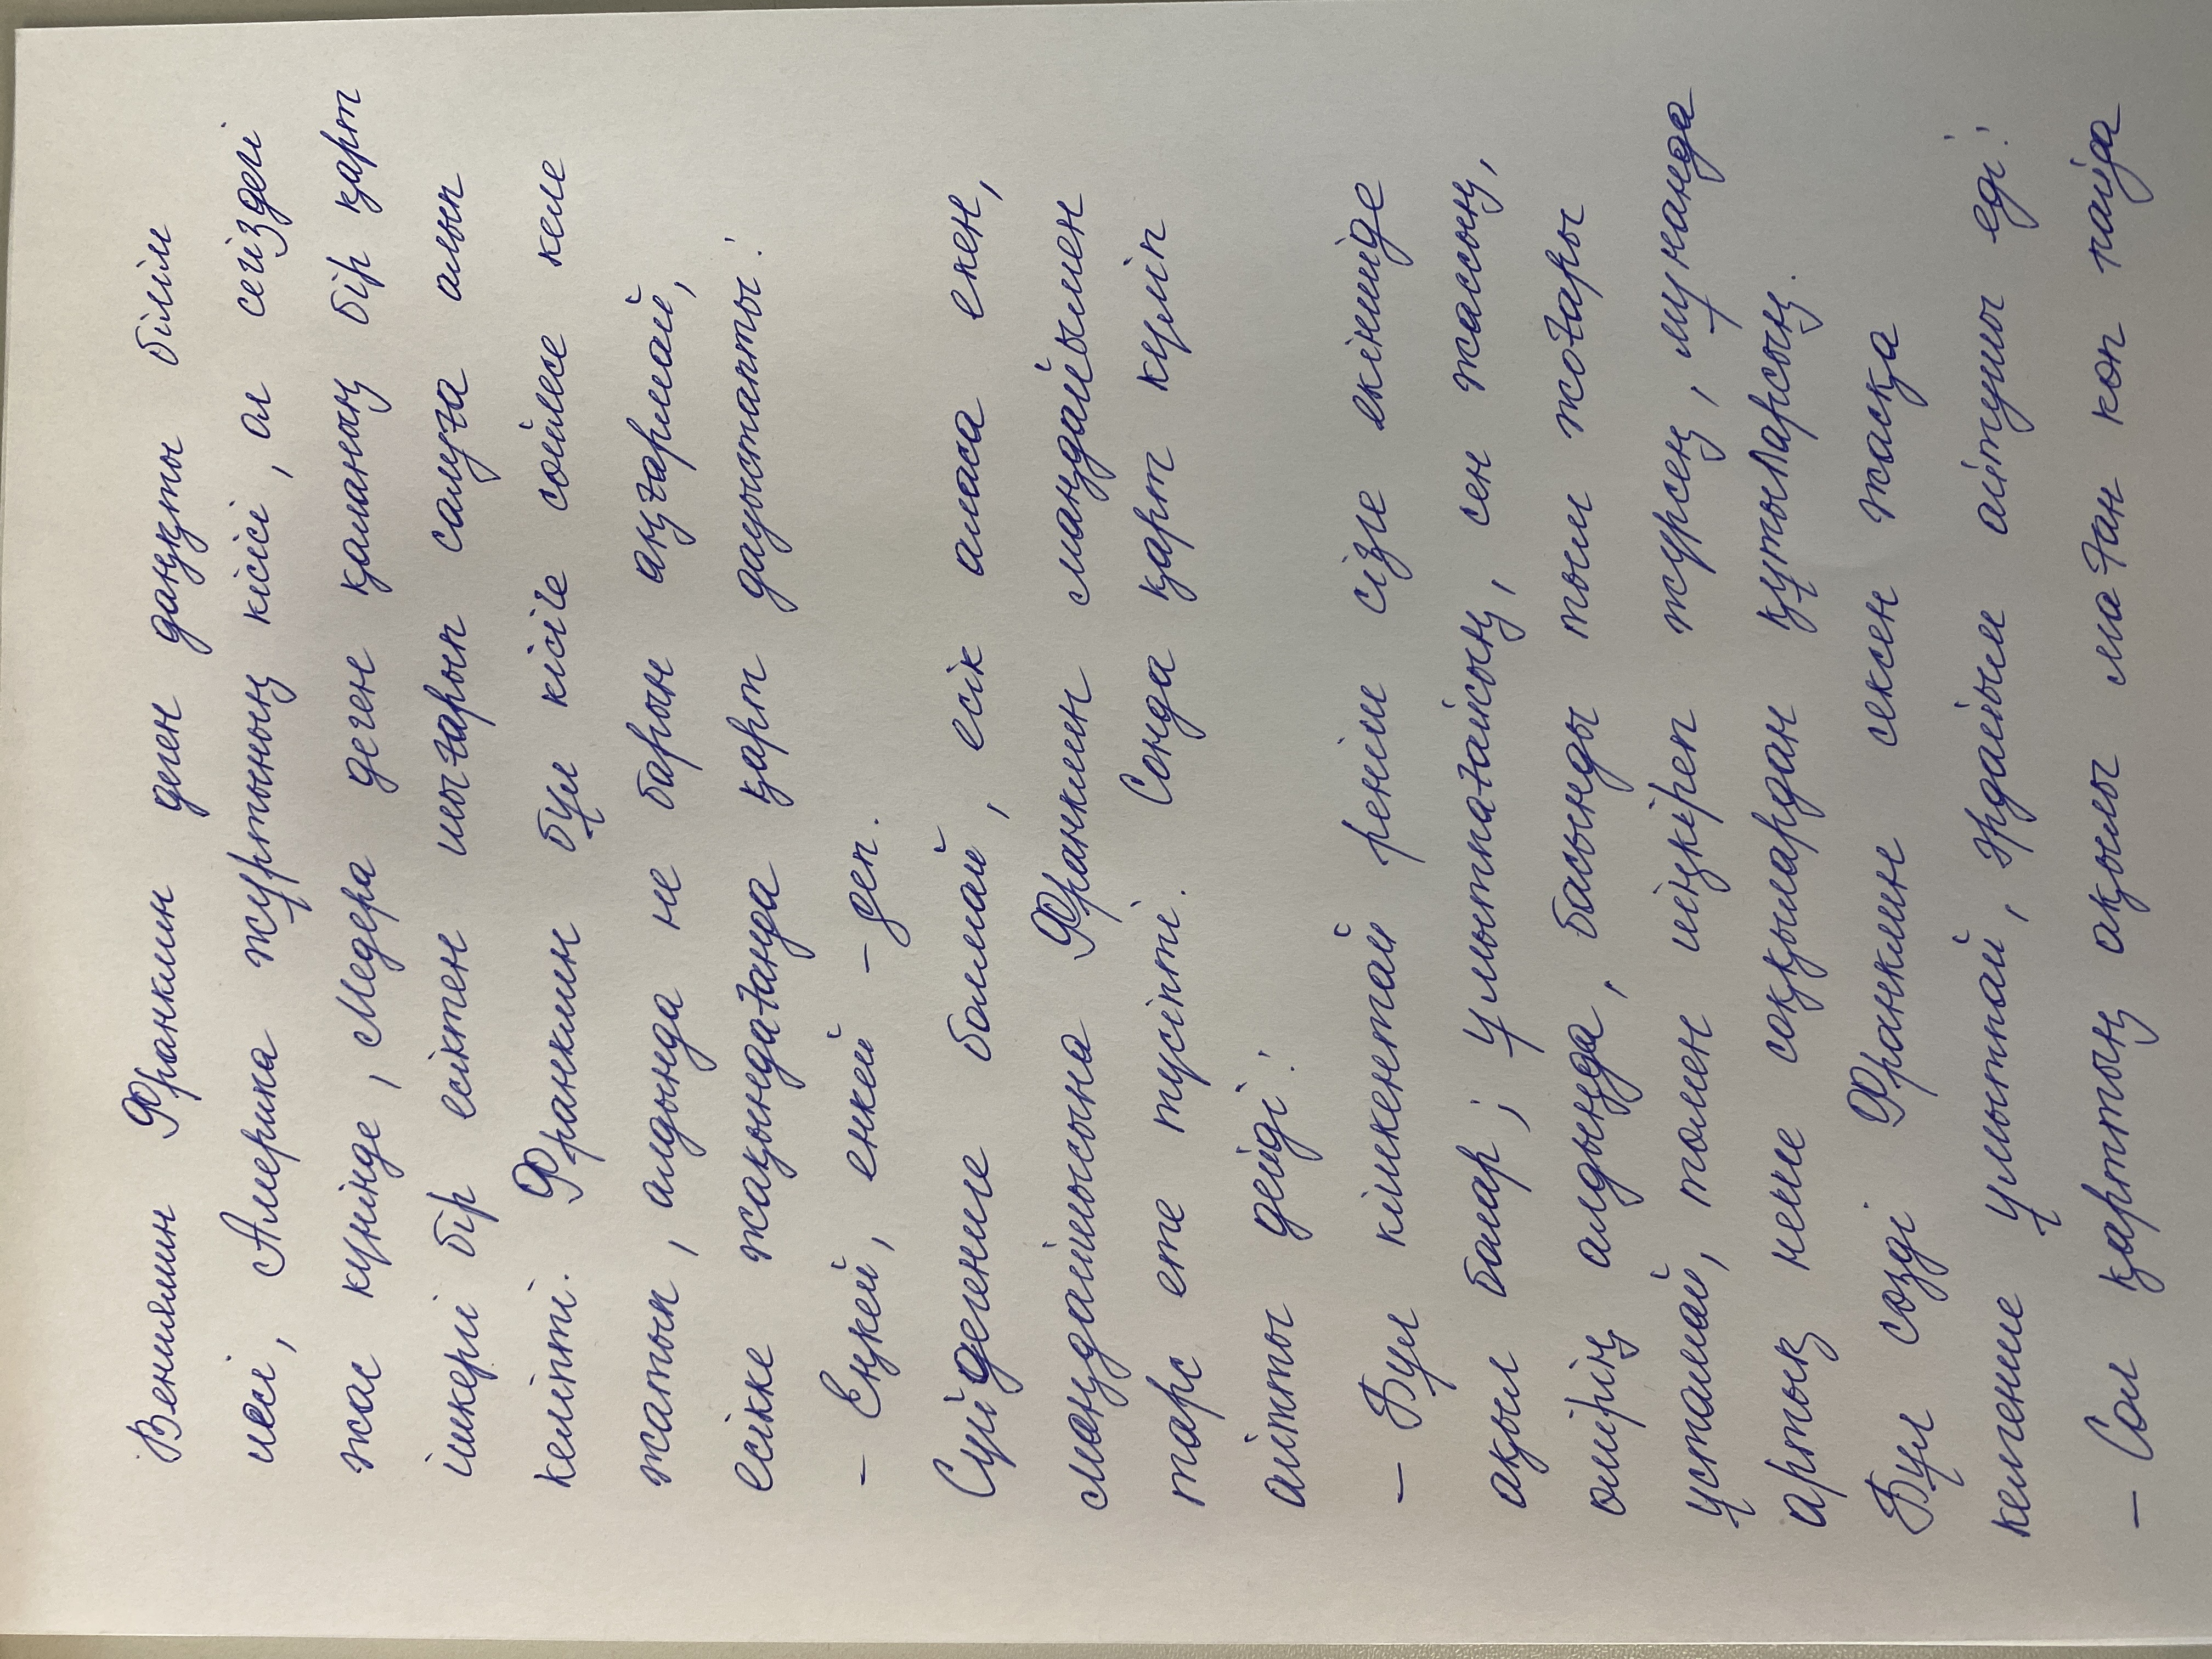 Вениямин Франклин деген даңқты білім
иесі, Америка жұртының кісісі, ол сегіздегі
жас күнінде, Медера деген қаланың бір қарт
ішкергі бір есіктен шығарып салуға алып
келіпті. Франклин бұл кісіге сөйлесе келе
жатып, алдында не барын аңғармай,
есікке жақындағанда қарт дауыстапты:
– Еңкей, енкей – деп.
Сүйдегенше болмай, есік аласа екен,
маңдайшысына Франклин маңдайымен
тарс ете түсіпті. Сонда қарт күліп
айтты дейді:
– Бұл кішкентай реніш сізге екіншіде
ақыл болар; ұмытпағайсың, сен жассың,
өмірің алдыңда, басынды тым жоғары
ұстамай, төмен иіңкіреп жүрсең, мұнанда
артық неше соққылардан құтыларсың.
Бұл сөзді Франклин сексен жасқа
келгенше ұмытпай, әрдайым айтушы еді:
– Сол қарттың ақылы маған көп пайда